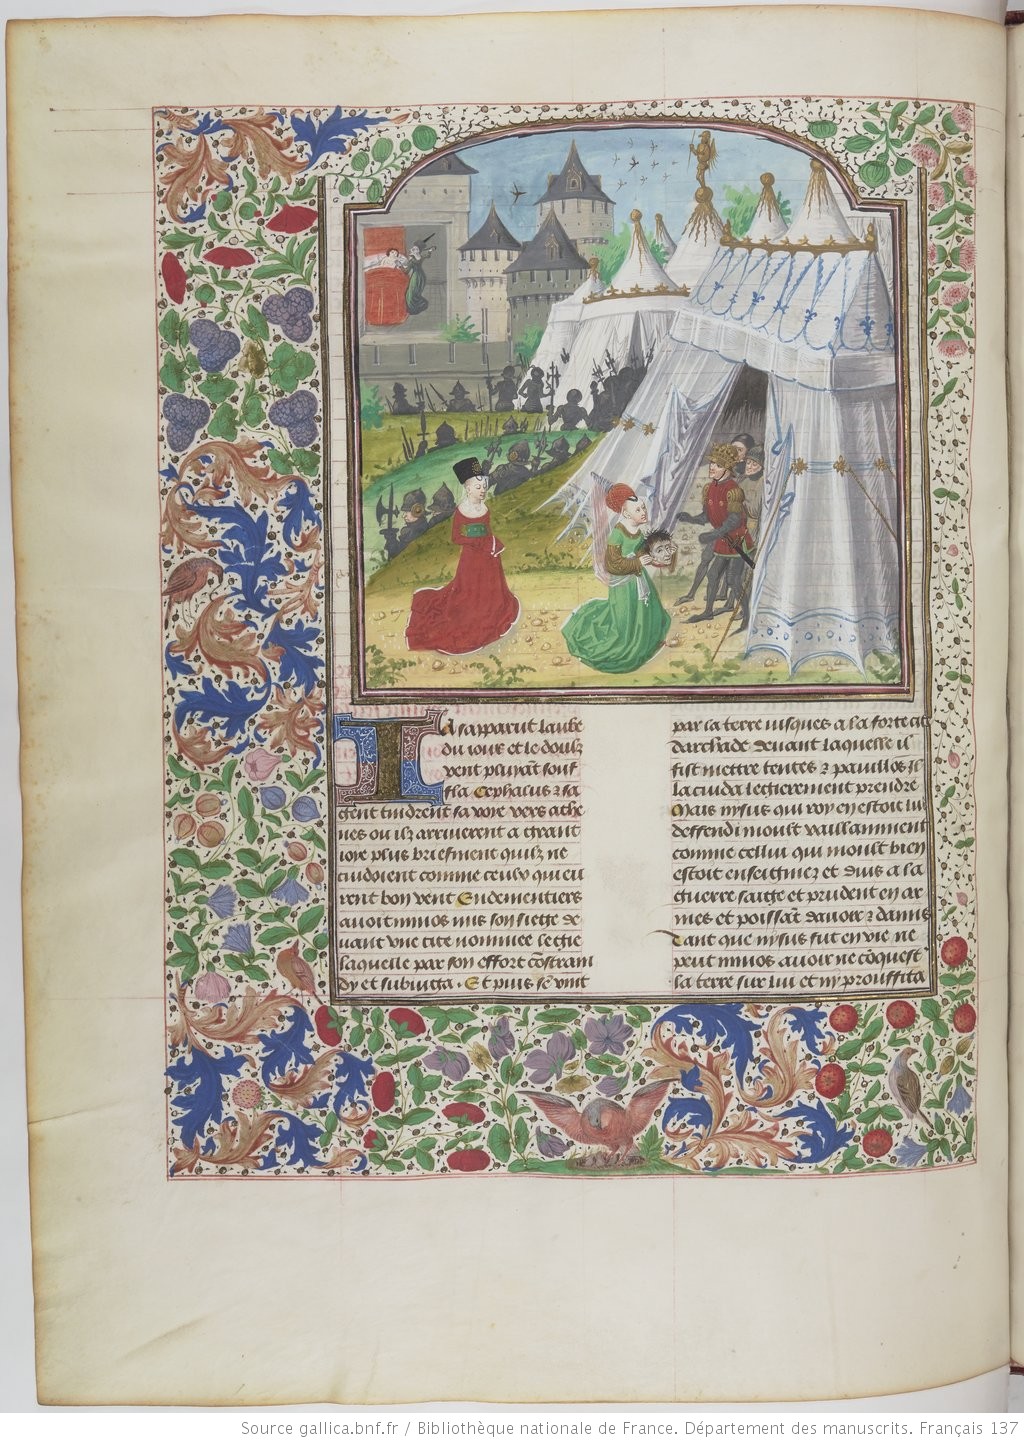 Ia sapparut laube
du iour et le doulz
vent pluyat souf
fla Cephalus & sa
gent tindrent sa voye vers athe
nes ou ilz arriuerent a grant
ioye plus briefment quilz ne
cuidoient comme ceulx qui eu
rent bon vent Endementiers
auoit minos mis son siege de
uant vne cite nommee legie
laquelle par son effort constrain
dy et subiuga . Et puis sen vint
par la terre iusques a la forte cite
darchade deuant laquelle il
fist mettre tentes & pauillos Il
la cuida legierement prendre
Mais nysus qui roy en estoit lui
deffendi moult vaillamment
comme cellui qui moult bien
estoit enseigniez et duis a la
guerre saige et prudent en ar
mes et poissat dauoir & damis
Tant que nysus fut en vie ne
peut minos auoir ne coquest
sa terre sur lui et ny prouffita
Source gallica.bnf.fr / Bibliothèque nationale de France. Département des manuscrits. Français 137